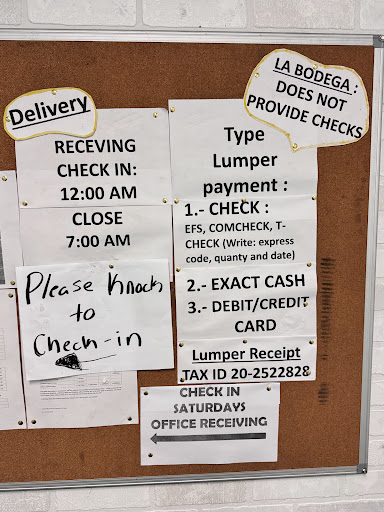 Delivery
RECEVING
CHECK IN:
12:00 AM
CLOSE
7:00 AM
Please knock
to
Check-in
LA BODEGA :
DOES NOT
PROVIDE CHECKS
Type
Lumper
payment :
1.- CHECK :
EFS, COMCHECK, T-
CHECK (Write: express
code, quanty and date)
2.- EXACT CASH
3.- DEBIT/CREDIT
CARD
Lumper Receipt
TAX ID 20-2522828
CHECK IN
SATURDAYS
OFFICE RECEIVING